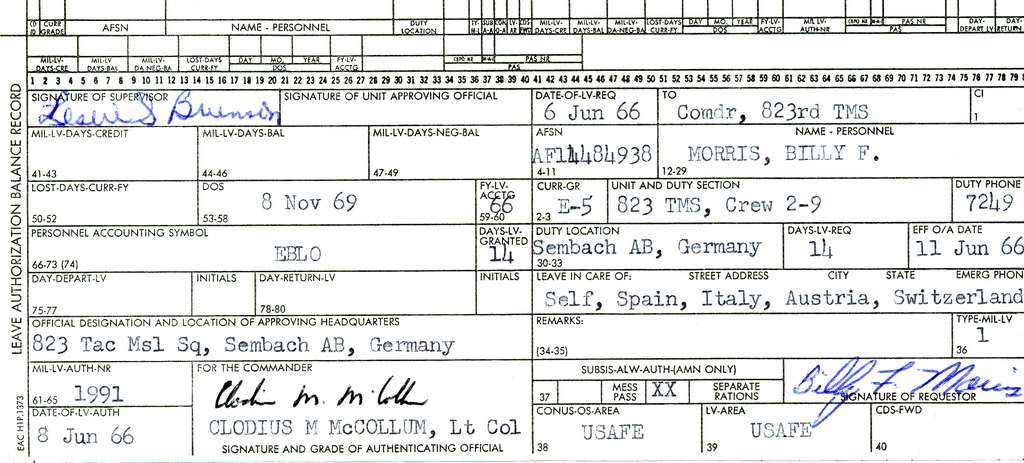 CURR GRADE AFSN NAME - PERSONNEL DUTY LOCATION MIL-LV- DAYS-CRE MIL-LV- DAYS-BAL MIL-LV- DA-NEG-BA LOST-DAYS CURR-FY DAY MO. YEAR DOS FY-LV- ACCTG MIL LV- AUTH-NR PAS NR PAS DAY- DEPART LV DAY- RETURN
MIL-LV- DAYS-CRE MIL-LV- DAYS-BAL MIL-LV- DA NEG-BA LOST-DAYS CURR-FY DAY MO. YEAR DOS FY-LV- ACCTG PAS NR PAS
1 2 3 4 5 6 7 8 9 10 11 12 13 14 15 16 17 18 19 20 21 22 23 24 25 26 27 28 29 30 31 32 33 34 35 36 37 38 39 40 41 42 43 44 45 46 47 48 49 50 51 52 53 54 55 56 57 58 59 60 61 62 63 64 65 66 67 68 69 70 71 72 73 74 75 76 77 78 79
LEAVE AUTHORIZATION BALANCE RECORD
EAC H1P.1373
SIGNATURE OF SUPERVISOR SIGNATURE OF UNIT APPROVING OFFICIAL DATE-OF-LV-REQ TO CI
Leslie S Brunson 6 Jun 66 Comdr, 823rd TMS 1
MIL-LV-DAYS-CREDIT MIL-LV-DAYS-BAL MIL-LV-DAYS-NEG-BAL AFSN NAME - PERSONNEL
AF14484938 MORRIS, BILLY F.
41-43 44-46 47-49 4-11 12-29
LOST-DAYS-CURR-FY DOS FY-LV- ACCTG CURR-GR UNIT AND DUTY SECTION DUTY PHONE
8 Nov 69 66 E-5 823 TMS, Crew 2-9 7249
50-52 53-58 59-60 2-3
PERSONNEL ACCOUNTING SYMBOL DAYS-LV- GRANTED DUTY LOCATION DAYS-LV-REQ EFF O/A DATE
EBLO 14 Sembach AB, Germany 14 11 Jun 66
66-73 (74) 30-33
DAY-DEPART-LV INITIALS DAY-RETURN-LV INITIALS LEAVE IN CARE OF: STREET ADDRESS CITY STATE EMERG PHON
75-77 78-80 Self, Spain, Italy, Austria, Switzerland
OFFICIAL DESIGNATION AND LOCATION OF APPROVING HEADQUARTERS REMARKS: TYPE-MIL-LV
823 Tac Msl Sq, Sembach AB, Germany (34-35) 36 1
MIL-LV-AUTH-NR FOR THE COMMANDER SUBSIS-ALW-AUTH-(AMN ONLY)
61-65 1991 Clodius M. McCollum 37 MESS PASS XX SEPARATE RATIONS Billy F. Morris
SIGNATURE OF REQUESTOR
DATE-OF-LV-AUTH CONUS-OS-AREA LV-AREA CDS-FWD
8 Jun 66 CLODIUS M McCOLLUM, Lt Col USAFE USAFE
SIGNATURE AND GRADE OF AUTHENTICATING OFFICIAL 38 39 40